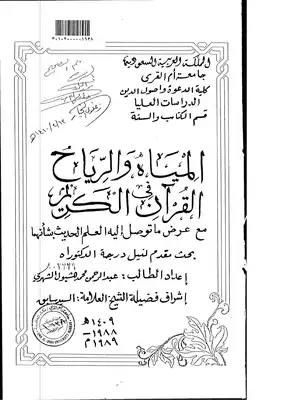 المملكة العربية السعودية
جامعة أم القرى
كلية الدعوة وأصول الدين
الدراسات العليا
قسم الكتاب والسنة
المياه والرياح
في
القرآن الكريم
مع عرض ما توصل إليه العلم الحديث بشأنها
بحث مقدم لنيل درجة الدكتوراه
إعداد الطالب : عبدالرحمن محمد
إشراف فضيلة الشيخ العلامة : السيد سابق
١٤٠٩هـ
١٩٨٨ –
١٩٨٩م